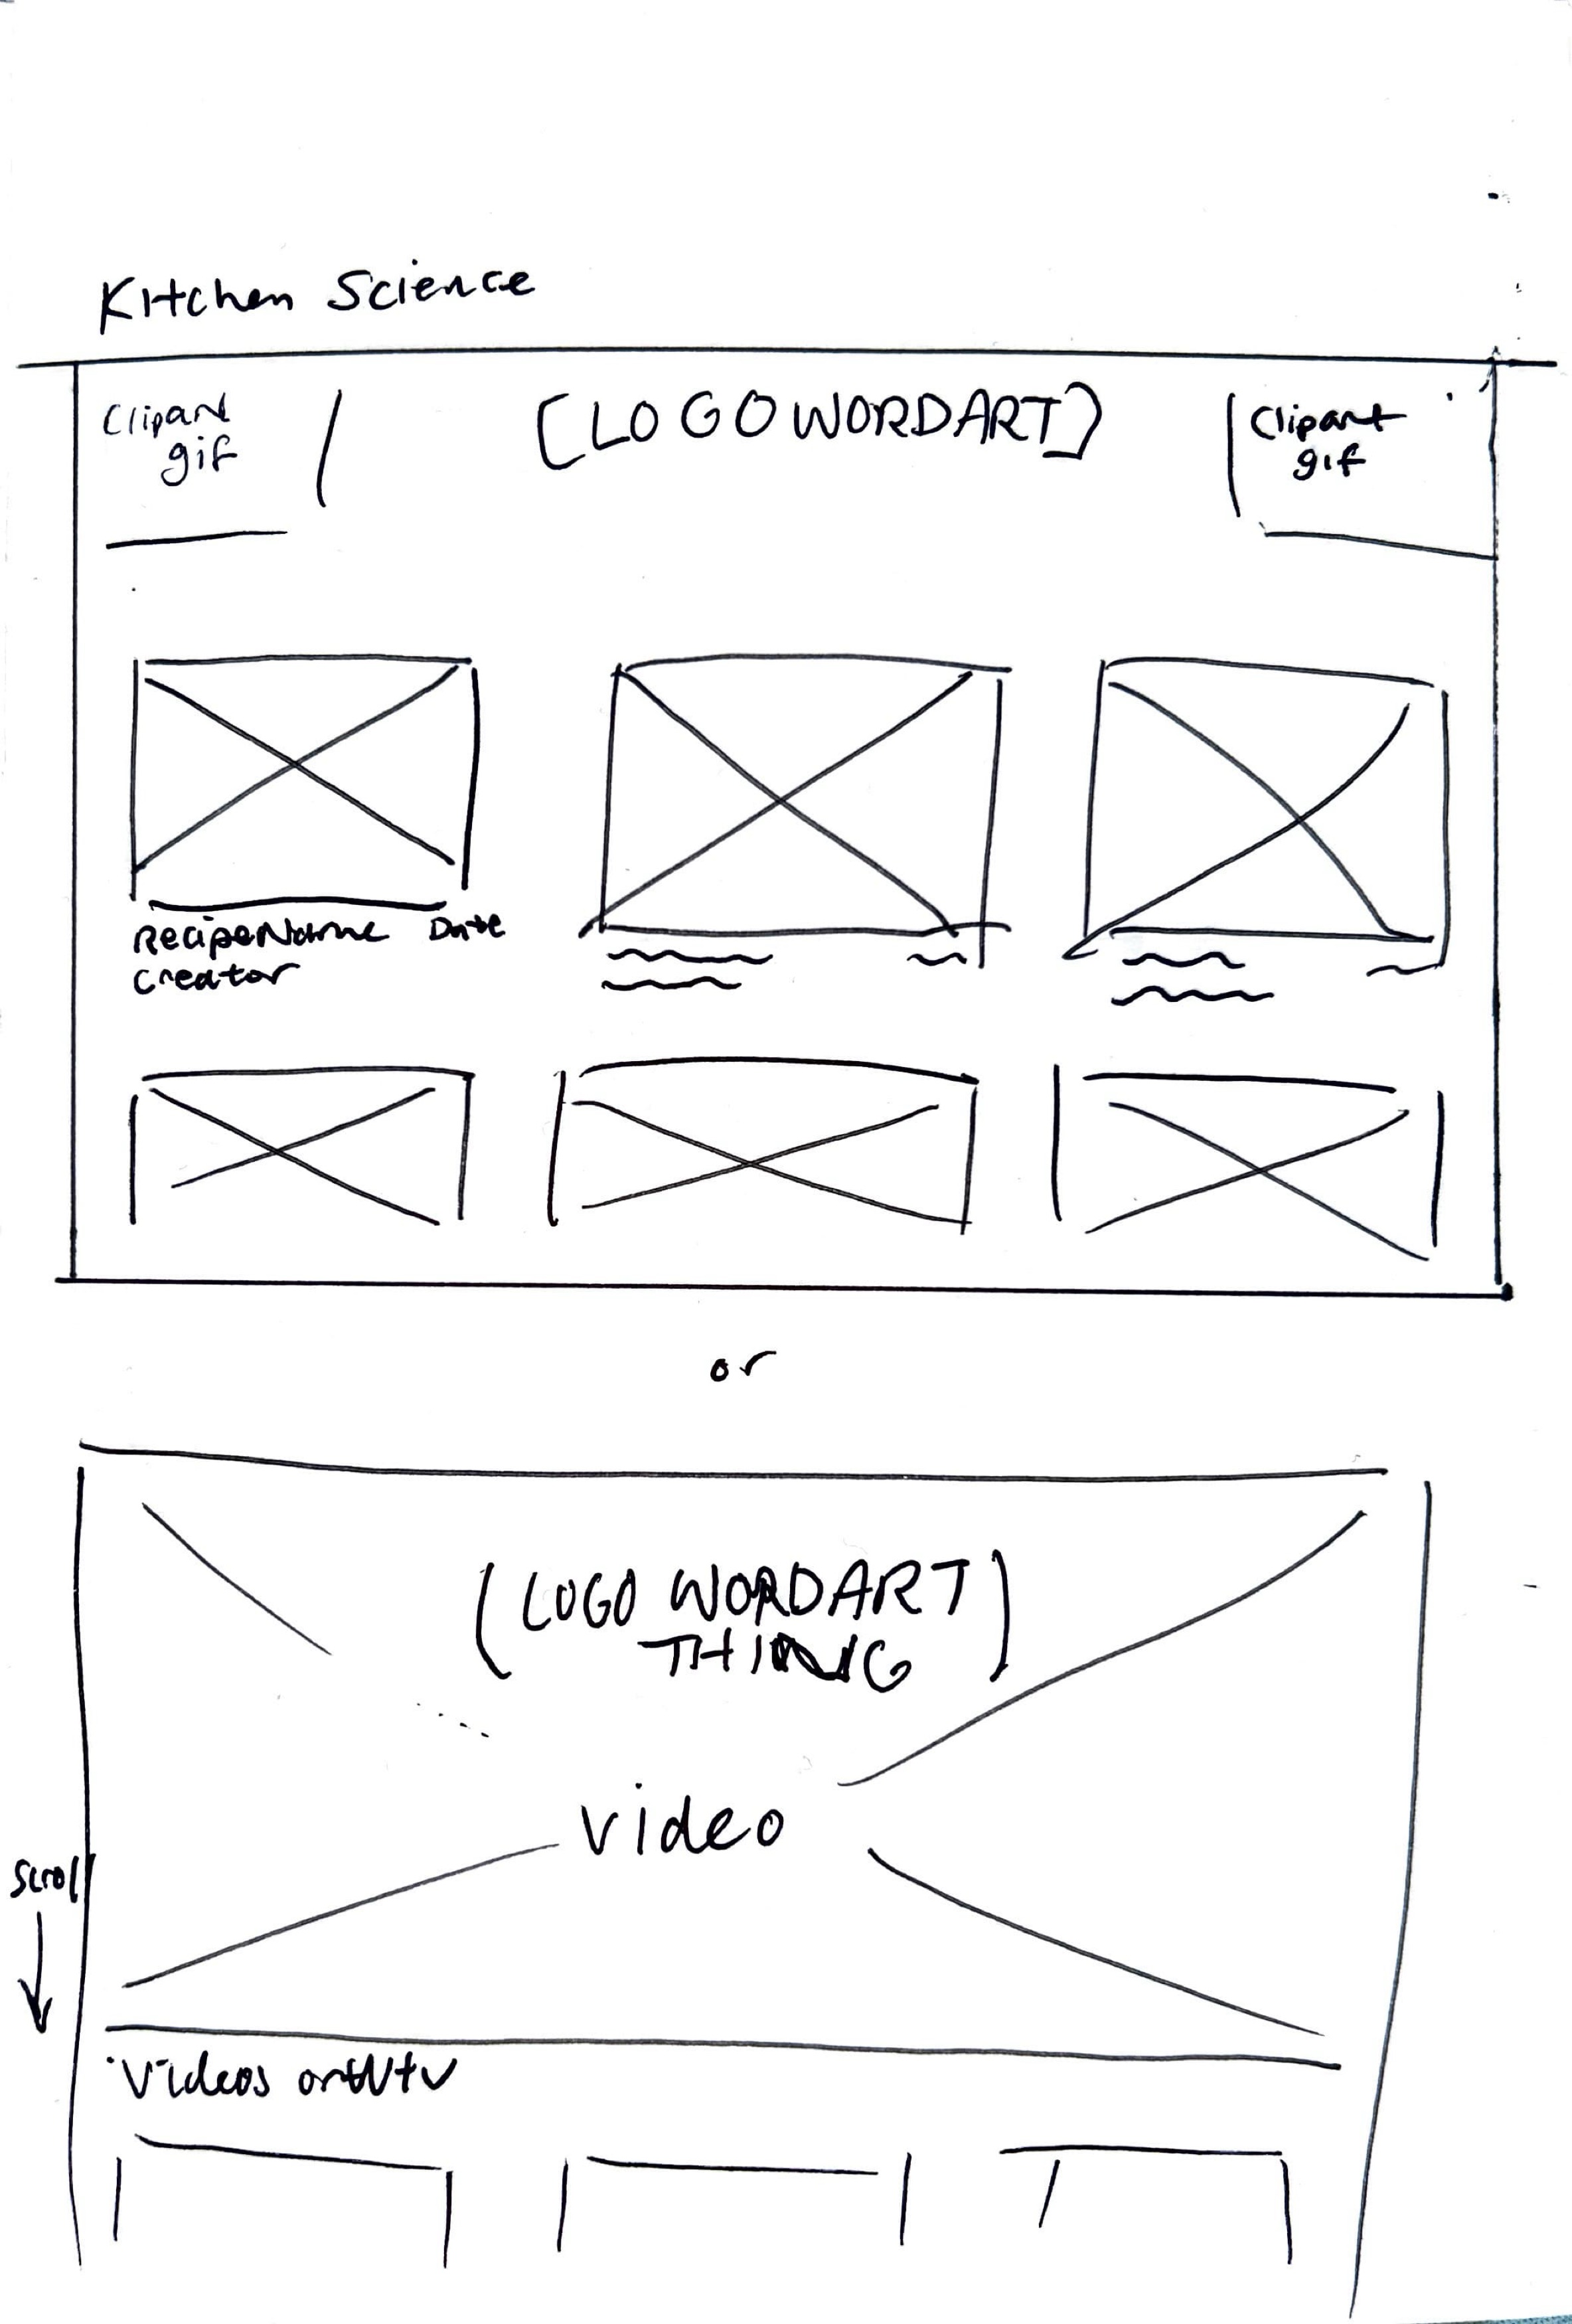 Kitchen Science
Clipart gif
[LOGO WORDART]
Clipart gif
RecipeName Date
Creator
or
[LOGO WORDART
THING]
Video
Scroll
Videos